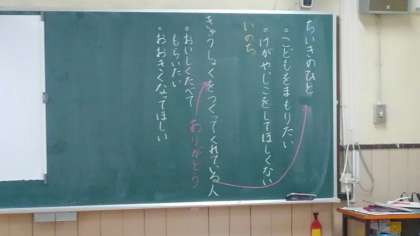 ちいきのひと
・こどもをまもりたい
・けがやじこをしてほしくない
いのち
きゅうしょくをつくってくれている人
ありがとう
・おいしくたべて
もらいたい
・おおきくなってほしい